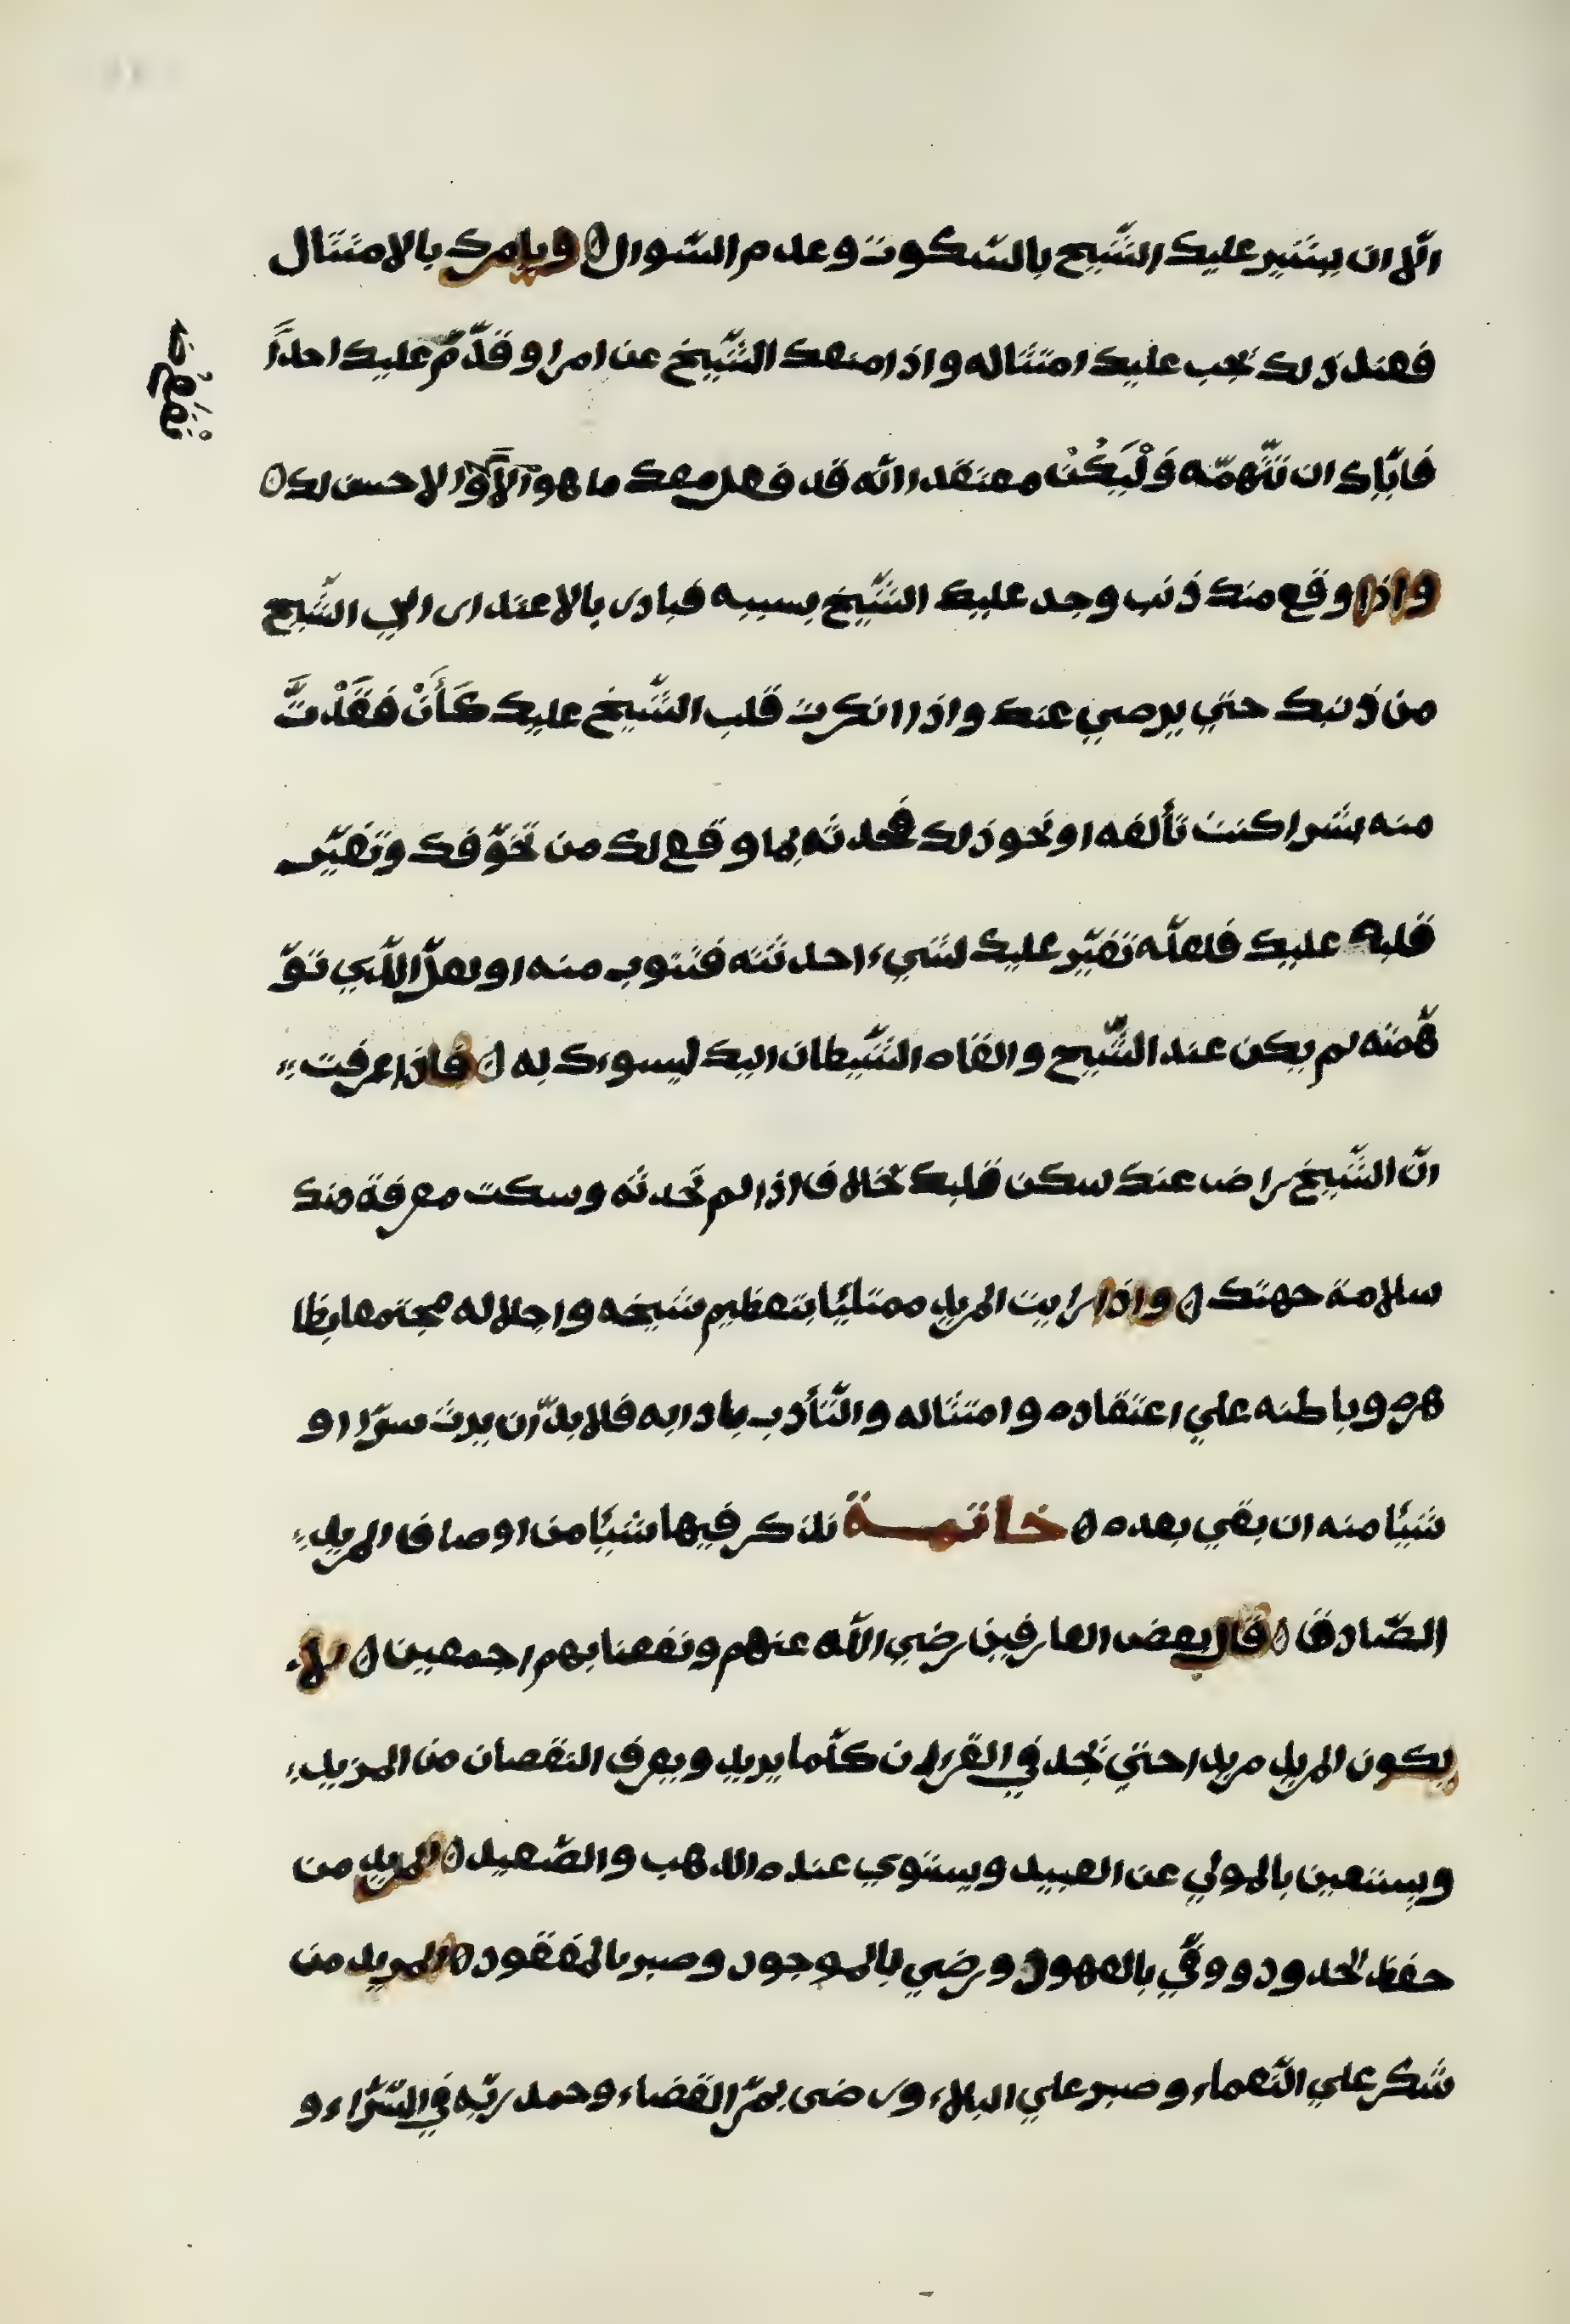 الّا ان يشير عليك الشّيح بالسّكوت وعدم السّوال ٥ ويامرك بالامتثال
فعند ذلك تجب عليك امتثاله واذا منعك الشّيخ عن امر او قدّم عليك احدًا
فايّاك ان تتّهمّه وَلْيَكُنْ معتقدا انّه قد فعل معك ما هو الاحسن لك ٥
واذا وقع منك ذنب وجد عليك الشّيخ بسببه فبادر بالاعتدار الي الشّيح
من ذنبك حتي يرضي عنك واذا انكرت قلب الشّيخ عليك كَأَنْ فَقَدْتَّ
منه بشرا كنت تألفه او نحو ذلك فحدثه بما وقع لك من تخوّفك وتغيّر
قلبه عليك فلعلّه تغيّر عليك لشيء احدثته فتتوب منه او لعلّ الّذي توّ
هّمته لم يكن عند الشّيح والقاه الشّيطان اليك ليسوءك به ٥ فاذا عرفت
انّ الشّيخ راض عنك سكن قلبك بخلاف اذا لم تحدثه وسكت معرفة منك
سلامة جهتك ٥ واذا رايت المريد ممتليًا بتعظيم شيخه واجلاله مجتمعا بظا
هره وباطنه علي اعتقاده وامتثاله والتّأدب بادابه فلا بدّ ان يرث سرّا او
شيًا منه ان بقي بعده ٥ خاتمة نذكر فيها شيًا من اوصاف المريد
الصّادق ٥ قال بعض العارفين رضي اللّه عنهم ونفعنا بهم اجمعين ٥ لا
يكون المريد مريدا حتي يجد في القران كلّما يريد ويعرف النقصان من المزيد
ويستعين بالمولي عن العبيد ويستوي عنده الذهب والصّعيد ٥ المريد من
حفظ الحدود ووفّي بالعهود ورضي بالموجود وصبر بالمفقود ٥ المريد من
شكر علي النّعماء وصبر علي البلاء ورضى بمرّ القضاء وحمد ربّه في السّرّاء و